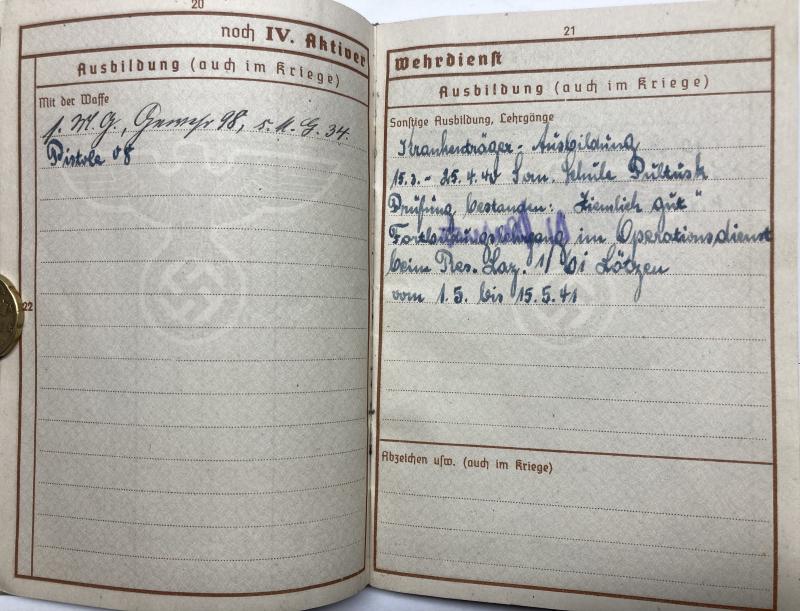 20
noch IV. Aktiver
Ausbildung (auch im Kriege)
Mit der Waffe
s. M G, Gewehr 98, s. M. G. 34.
Pistole 08
22
21
Wehrdienst
Ausbildung (auch im Kriege)
Sonstige Ausbildung, Lehrgänge
Krankenträger - Ausbildung
15.3. - 25.4.40 San. Schule Pultusk
Prüfung bestanden: Ziemlich gut"
Fortbildungslehrgang im Operationsdienst
beim Res. Laz. 1/ Lötzen
vom 1.5. bis 15.5.41
Abzeichen usw. (auch im Kriege)